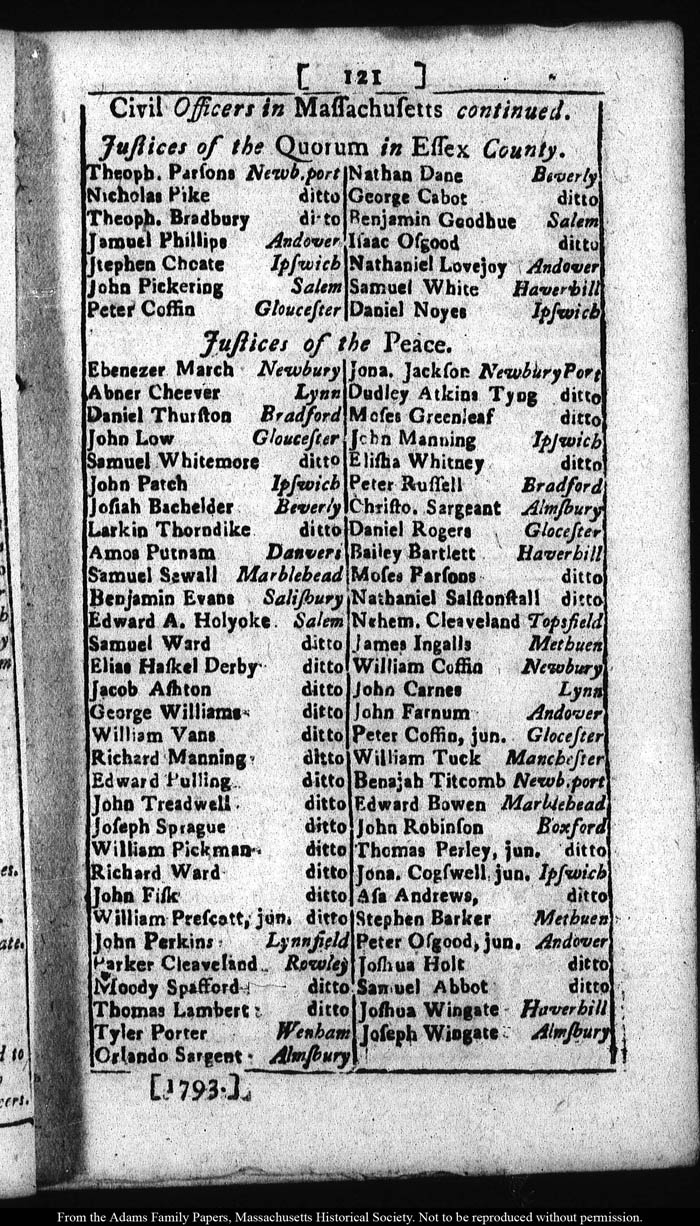 [ 121 ]
Civil Officers in Maſſachuſetts continued.
Juſtices of the Quorum in Eſſex County.
Theoph. Parſons Newb.port
Nicholas Pike ditto
Theoph. Bradbury ditto
Samuel Phillips Andover
Stephen Choate Ipſwich
John Pickering Salem
Peter Coffin Glouceſter
Nathan Dane Beverly
George Cabot ditto
Benjamin Goodhue Salem
Iſaac Oſgood ditto
Nathaniel Lovejoy Andover
Samuel White Haverhill
Daniel Noyes Ipſwich
Juſtices of the Peace.
Ebenezer March Newbury
Abner Cheever Lynn
Daniel Thurſton Bradford
John Low Glouceſter
Samuel Whitemore ditto
John Patch Ipſwich
Joſiah Bachelder Beverly
Larkin Thorndike ditto
Amos Putnam Danvers
Samuel Sewall Marblehead
Benjamin Evans Saliſbury
Edward A. Holyoke Salem
Samuel Ward ditto
Elias Haſkel Derby ditto
Jacob Aſhton ditto
George Williams ditto
William Vans ditto
Richard Manning ditto
Edward Pulling ditto
John Treadwell ditto
Joſeph Sprague ditto
William Pickman ditto
Richard Ward ditto
John Fiſk ditto
William Preſcott, jun. ditto
John Perkins Lynnfield
Parker Cleaveland Rowley
Moody Spafford ditto
Thomas Lambert ditto
Tyler Porter Wenham
Orlando Sargent Almſbury
Jona. Jackſon NewburyPort
Dudley Atkins Tyng ditto
Moſes Greenleaf ditto
John Manning Ipſwich
Eliſha Whitney ditto
Peter Ruſſell Bradford
Chriſto. Sargeant Almſbury
Daniel Rogers Gloceſter
Bailey Bartlett Haverhill
Moſes Parſons ditto
Nathaniel Salſtonſtall ditto
Nehem. Cleaveland Topsfield
James Ingalls Methuen
William Coffin Newbury
John Carnes Lynn
John Farnum Andover
Peter Coffin, jun. Gloceſter
William Tuck Mancheſter
Benajah Titcomb Newb.port
Edward Bowen Marblehead
John Robinſon Boxford
Thomas Perley, jun. ditto
Jona. Cogſwell, jun. Ipſwich
Aſa Andrews, ditto
Stephen Barker Methuen
Peter Oſgood, jun. Andover
Joſhua Holt ditto
Samuel Abbot ditto
Joſhua Wingate Haverhill
Joſeph Wingate Almſbury
[1793.]
From the Adams Family Papers, Massachusetts Historical Society. Not to be reproduced without permission.